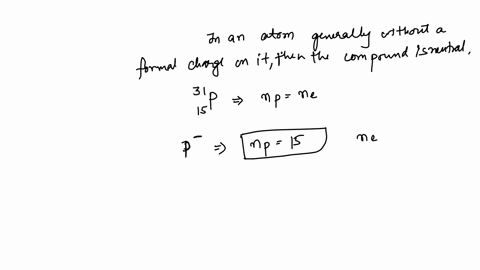 In an atom generally without a
formal charge on it, then the compound is neutral.
³¹₁₅P ⇒ np = ne
P⁻ ⇒ np = 15 ne